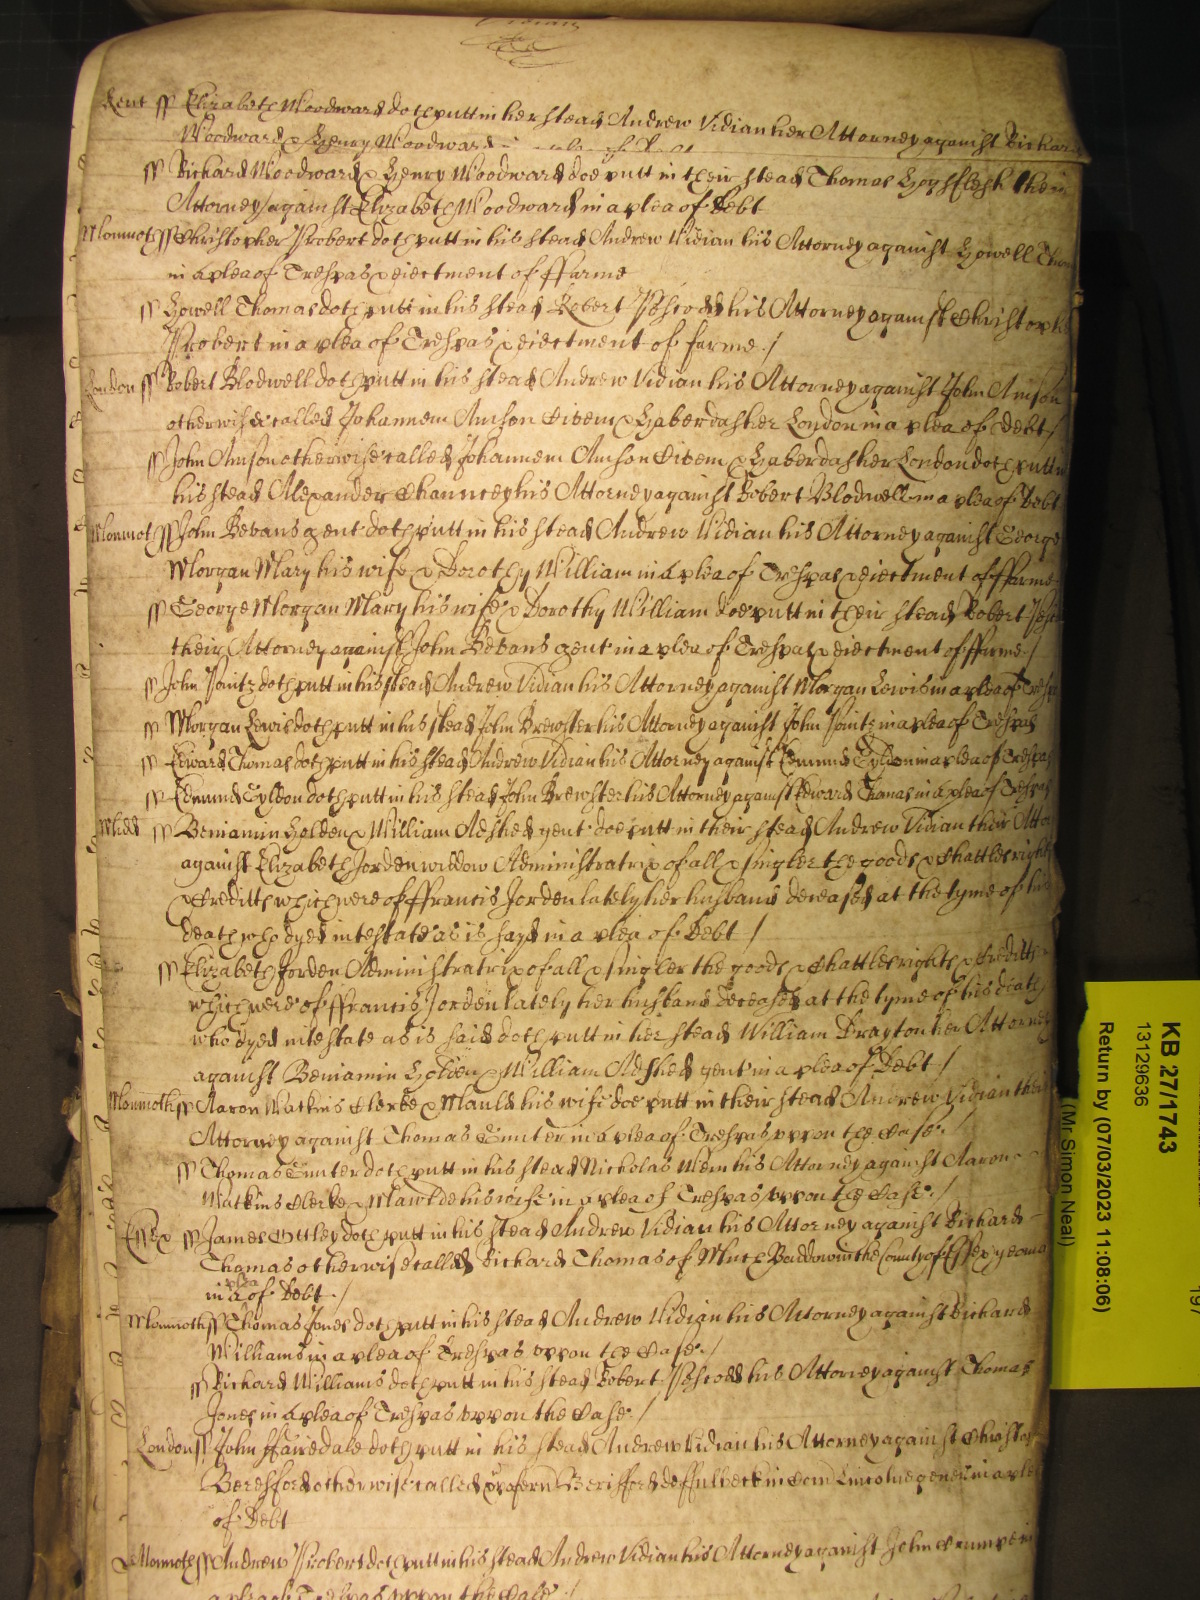 Vidian
Kent ss Elizabeth Woodward doth putt in her stead Andrew Vidian her Attorney against Richard
Woodward & Henry Woodward in a plea of Debt
ss Richard Woodward & Henry Woodward doe putt in their stead Thomas their
Attorney against Elizabeth Woodward in a plea of Debt
Monmoth ss Christopher Probert doth putt in his stead Andrew Vidian his Attorney against Howell Thomas
in a plea of Trespas & eiectment of ffarme
ss Howell Thomas doth putt in his stead Robert Pescodd his Attorney against Christopher
Probert in a plea of Trespas & eiectment of farme /
London ss Robert Blodwell doth putt in his stead Andrew Vidian his Attorney against John Amson
otherwise called Johannem Amson Citem & Haberdasher London in a plea of Debt /
ss John Amson otherwise called Johannem Amson Citem & Haberdasher London doth putt in
his stead Alexander Chauncey his Attorney against Robert Blodwell in a plea of Debt
Monmoth ss John Bevans gent doth putt in his stead Andrew Vidian his Attorney against George
Morgan Mary his wife & Dorothy William in a plea of Trespas & eiectment of ffarme
ss George Morgan Mary his wife & Dorothy William doe putt in their stead Robert
their Attorney against John Bevans gent in a plea of Trespas & eiectment of ffarme /
ss John doth putt in his stead Andrew Vidian his Attorney against Morgan Lewis in a plea of Trespas
ss Morgan Lewis doth putt in his stead John Brewster his Attorney against John in a plea of Trespas
ss Edward Thomas doth putt in his stead Andrew Vidian his Attorney against Edmund Tyldon in a plea of Trespas
ss Edmund Tyldon doth putt in his stead John Brewster his Attorney against Edward Thomas in a plea of Trespas
Midd ss Beniamin Holden & William Adshed gent doe putt in their stead Andrew Vidian their Attorney
against Elizabeth Jorden widdow Administratrix of all & singler the goods & Chattles rights
& Creditts which were of ffrancis Jorden lately her husband deceased at the tyme of his
death who dyed intestate as is sayd in a plea of Debt /
ss Elizabeth Jorden Administratrix of all & singler the goods & Chattles rights & Creditts
which were of ffrancis Jorden lately her husband deceased at the tyme of his death
who dyed intestate as is said doth putt in her stead William Drayton her Attorney
against Beniamin Holden & William Adshed gent in a plea of Debt /
Monmoth ss Aaron Watkins Clerke & Mauld his wife doe putt in their stead Andrew Vidian their
Attorney against Thomas Gunter in a plea of Trespas uppon the Case /
ss Thomas Gunter doth putt in his stead Nicholas his Attorney against Aaron
Watkins Clerke & Mawlde his wife in a plea of Trespas uppon the Case /
Essex ss James Ottley doth putt in his stead Andrew Vidian his Attorney against Richard
Thomas otherwise called Richard Thomas of Much Baddow in the County of Essex yeoman
in a plea of Debt /
Monmoth ss Thomas Jones doth putt in his stead Andrew Vidian his Attorney against Richard
Williams in a plea of Trespas uppon the Case /
ss Richard Williams doth putt in his stead Robert Pescodd his Attorney against Thomas
Jones in a plea of Trespas uppon the Case /
London ss John ffairedale doth putt in his stead Andrew Vidian his Attorney against
Beresford otherwise called Berifford de ffulbeck in Com Lincolne gener in a plea
of Debt
Monmoth ss Andrew Probert doth putt in his stead Andrew Vidian his Attorney against John in
a plea of Trespas uppon the Case /
KB 27/1743
13129636
Return by (07/03/2023 11:08:06)
(Mr Simon Neal)